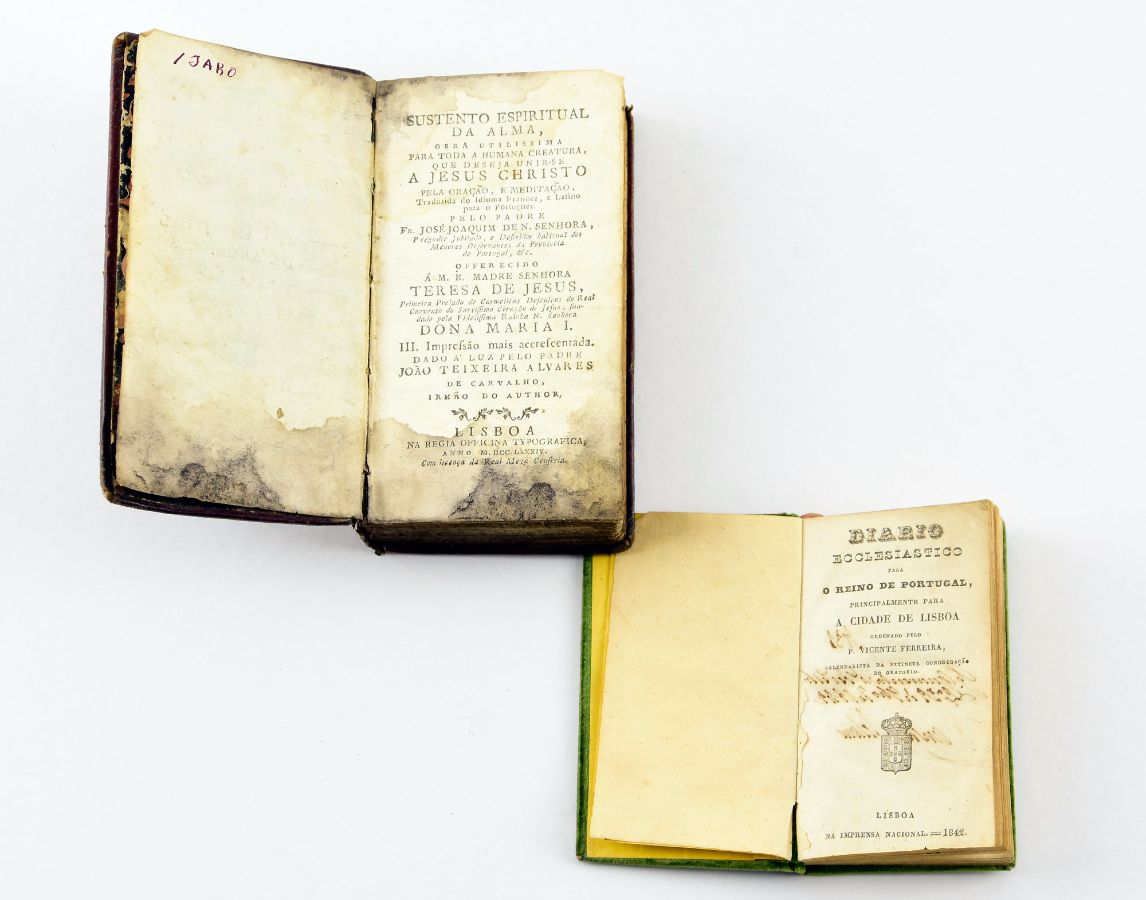 1 JARO
SUSTENTO ESPIRITUAL
DA ALMA,
OBRA UTILISSIMA
PARA TODA A HUMANA CREATURA,
QUE DESEJA UNIR-SE
A JESUS CHRISTO
PELA ORAÇÃO, E MEDITAÇÃO,
Traduzida do Idioma Francez, e Latino
para o Portuguez
PELO PADRE
FR. JOSÉ JOAQUIM DE N. SENHORA,
Prégador Jubilado, e Definidor habitual dos
Menores Observantes da Provincia
de Portugal, &c.
OFFERECIDO
Á M. R. MADRE SENHORA
TERESA DE JESUS,
Primeira Prelada de Carmelitas Descalças do Real
Convento do Santissimo Coração de Jesus, fun-
dado pela Fidelissima Rainha N. Senhora
DONA MARIA I.
III. Impressão mais accrescentada.
DADO A' LUZ PELO PADRE
JOÃO TEIXEIRA ALVARES
DE CARVALHO,
IRMÃO DO AUTHOR,
LISBOA
NA REGIA OFFICINA TYPOGRAFICA,
ANNO M. DCC. LXXXIV.
Com licença da Real Meza Censoria.
DIARIO
ECCLESIASTICO
PARA
O REINO DE PORTUGAL,
PRINCIPALMENTE PARA
A CIDADE DE LISBOA
ORDENADO PELO
P. VICENTE FERREIRA,
CALENDARISTA DA EXTINCTA CONGREGAÇÃO
DO ORATORIO.
LISBOA
NA IMPRENSA NACIONAL.=1842.